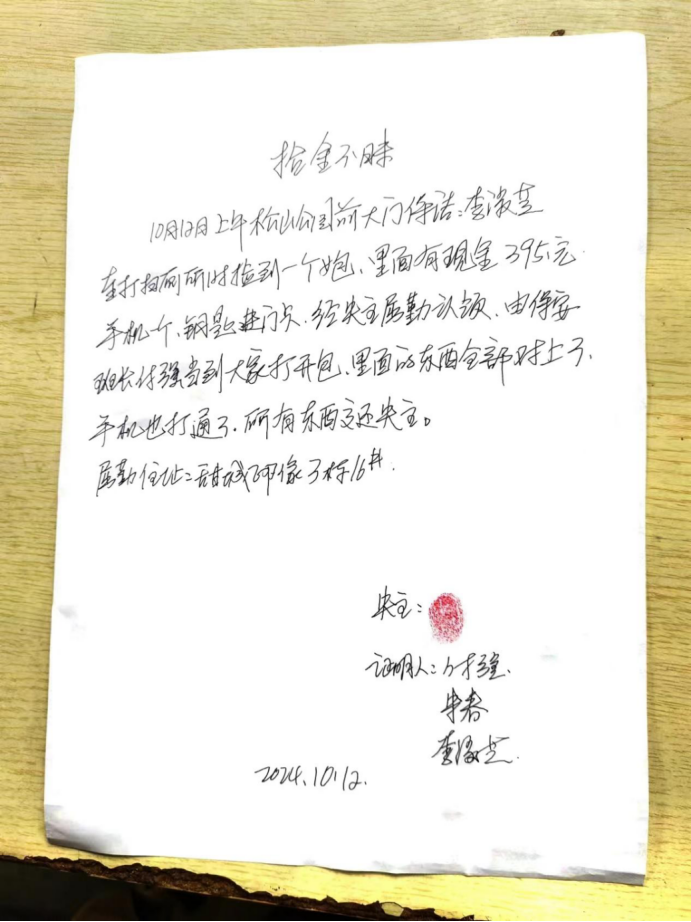 拾金不昧
10月12月上午松山公园前大门保洁:李淑芝
在打扫厕所时捡到一个包、里面有现金395元
手机一个、钥匙、门卡、经失主屈勤认领、由保安
班长付强当到大家打开包、里面的东西全部对上了、
手机也打通了、所有东西交还失主。
屈勤住址:甜城印象3栋16#.
失主:
证明人:付强.
牟春
李淑芝.
2024.10.12.